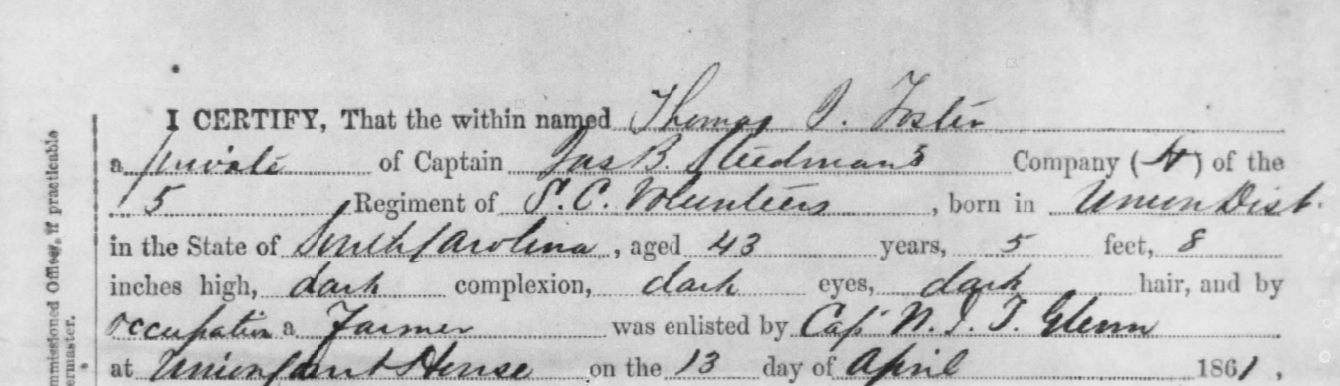 I CERTIFY, That the within named Thomas J. Foster
a private of Captain Jas B. Steedmans Company ( ) of the
5 Regiment of S. C. Volunteers, born in Union Dist.
in the State of South Carolina, aged 43 years, 5 feet, 8
inches high, dark complexion, dark eyes, dark hair, and by
occupation a Farmer was enlisted by Cap N. J. T. Glenn
at Union Court House on the 13 day of April 1861,
mmissioned Officer, if practicable
ermaster.